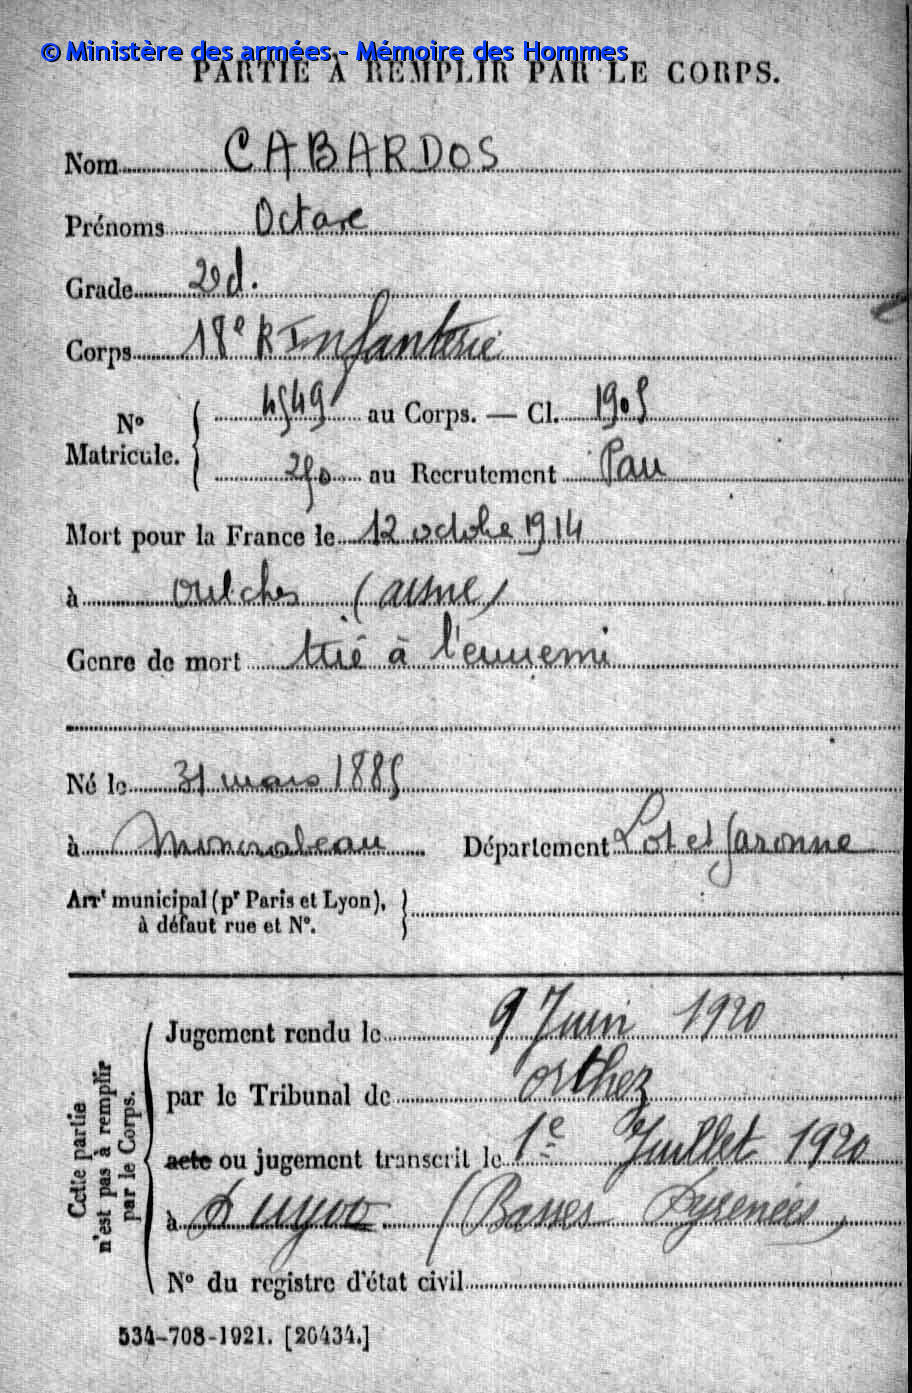 © Ministère des armées - Mémoire des Hommes
PARTIE À REMPLIR PAR LE CORPS.
Nom CABARDOS
Prénoms Octave
Grade 2e d.
Corps 18e R Infanterie
No Matricule. { 4549 au Corps. — Cl. 1905
250 au Recrutement Pau
Mort pour la France le 12 octobre 1914
à Oulches (Aisne)
Genre de mort tué à l'ennemi
Né le 31 mars 1885
à Moncrabeau Département Lot et Garonne
Arrt municipal (pr Paris et Lyon),
à défaut rue et No.
Cette partie
n'est pas à remplir
par le Corps.
Jugement rendu le 9 Juin 1920
par le Tribunal de Orthez
acte ou jugement transcrit le 1e Juillet 1920
à (Basses Pyrénées)
No du registre d'état civil
534-708-1921. [26434.]